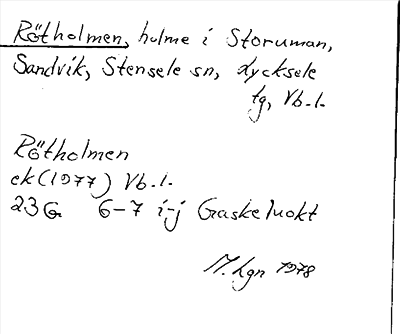 Rötholmen, holme i Storuman,
Sandvik, Stensele sn, Lycksele
tg, Vb.l.
Rötholmen
ek (1977) Vb.l.
23G 6-7 i-j Gaskeluokt
M. Lgn 1978